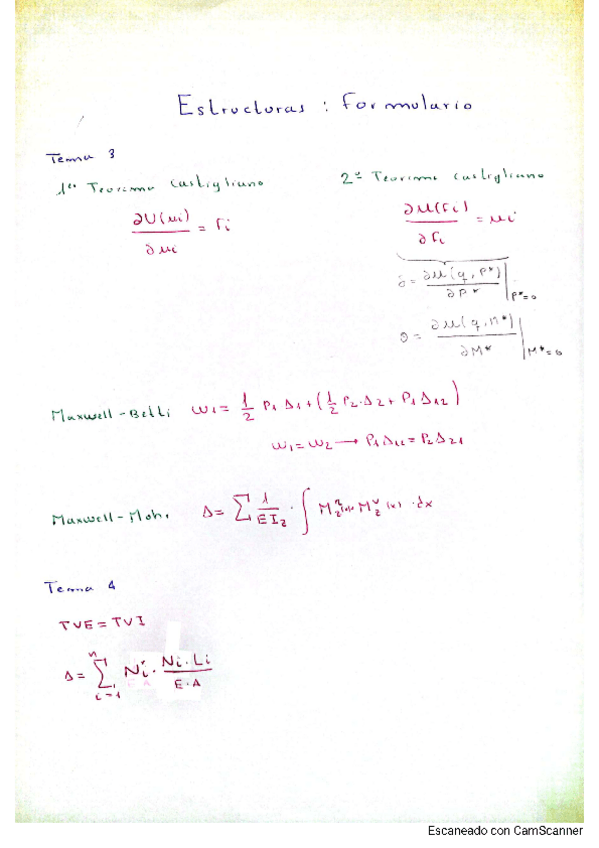 Estructuras : formulario
Tema 3
1er Teorema Castigliano
∂U(ui)/∂ui = Fi
2º Teorema Castigliano
∂U(Fi)/∂Fi = ui
δ = ∂U(q, P*)/∂P* |P*=0
θ = ∂U(q, M*)/∂M* |M*=0
Maxwell-Betti W1 = 1/2 P1 Δ1 + (1/2 P2·Δ2 + P1 Δ12)
W1 = W2 → P1Δ12 = P2Δ21
Maxwell-Mohr Δ = Σ 1/EIz · ∫ Mz (x) Mzv (x) · dx
Tema 4
TVE = TVI
Δ = Σ i=1 n Ni' · Ni·Li/E·A
Escaneado con CamScanner